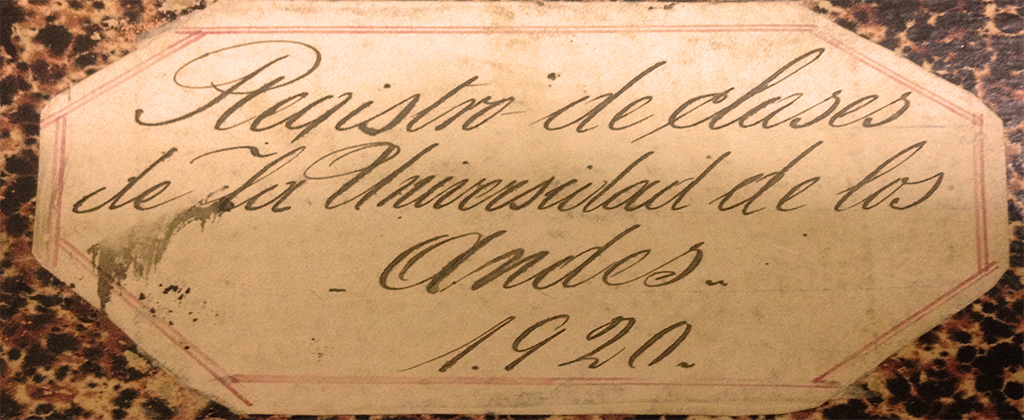 Registro de clases
de la Universidad de los
- Andes -
1.920.